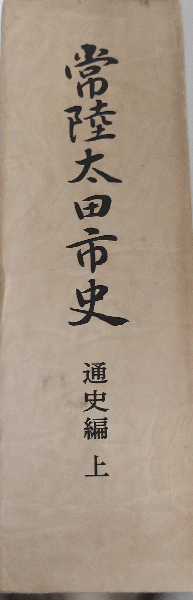 常陸太田市史
通史編 上